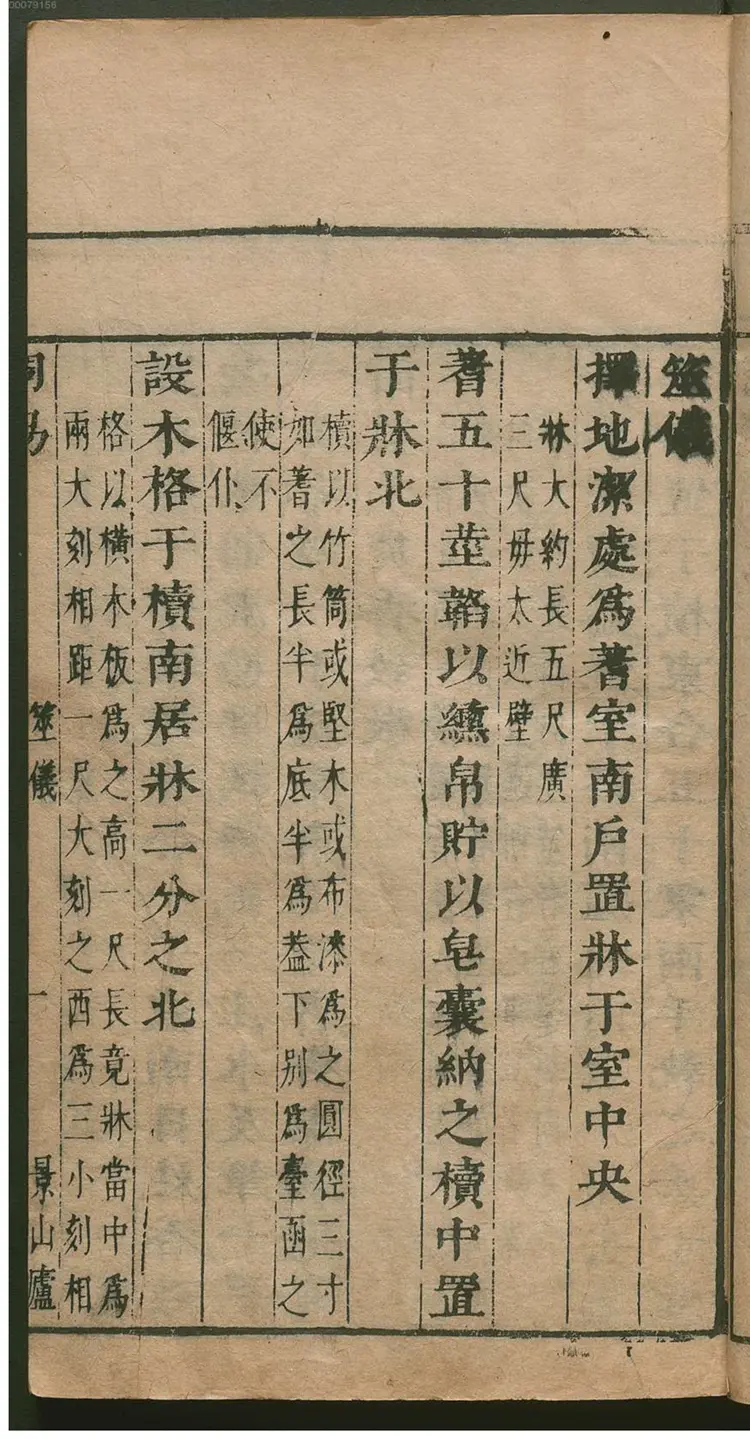 00079158
筮儀
擇地潔處爲蓍室南戶置牀于室中央
牀大約長五尺廣
三尺毋太近壁
蓍五十莖韜以纁帛貯以皂囊納之櫝中置
于牀北
櫝以竹筒或堅木或布漆爲之圓徑三寸
如蓍之長半爲底半爲葢下别爲臺函之
使不
偃仆
設木格于櫝南居牀二分之北
格以橫木板爲之高一尺長竟牀當中爲
兩大刻相距一尺大刻之西爲三小刻相
周易
筮儀
一
景山廬